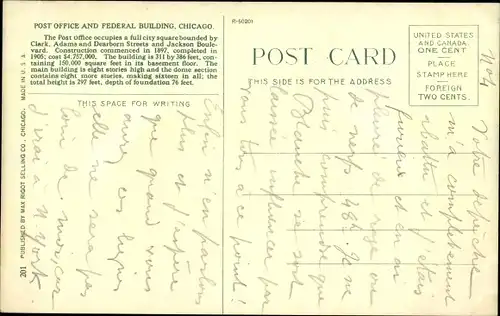 POST OFFICE AND FEDERAL BUILDING, CHICAGO.
The Post office occupies a full city square bounded by
Clark, Adams and Dearborn Streets and Jackson Boule-
vard. Construction commenced in 1897, completed in
1905; cost $4,757,000. The building is 311 by 386 feet, con-
taining 150,000 square feet in its basement floor. The
main building is eight stories high and the dome section
contains eight more stories, making sixteen in all; the
total height is 297 feet, depth of foundation 76 feet.
THIS SPACE FOR WRITING
MADE IN U. S. A.
201 PUBLISHED BY MAX RIGOT SELLING CO., CHICAGO.
R-50201
POST CARD
THIS SIDE IS FOR THE ADDRESS
UNITED STATES
AND CANADA
ONE CENT
PLACE
STAMP HERE
FOREIGN
TWO CENTS.
No 4
Votre dépêche
m'a complètement
abattu et j'étais
furieux et en ai
pleuré de rage
de nerfs 48h. Je ne
puis comprendre que
Blanche se soit
laissée influencer par
vous tous à ce point!
Enfin n'en parlons
plus et j'espère
que quand vous
aurez ces lignes
elle ne sera pas
loin de
J'irai à N. York.